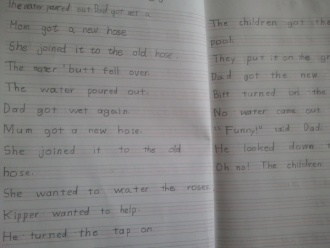 The water poured out. Dad got wet
Mom got a new hose
She joined it to the old hose.
The water butt fell over.
The water poured out.
Dad got wet again.
Mum got a new hose.
She joined it to the old
hose.
She wanted to water the roses
Kipper wanted to help.
He turned the tap on.
The children got the
pool.
They put it on the
Dad got the new
Biff turned on the
No water came out
"Funny!" said Dad.
He looked down
Oh no! The children